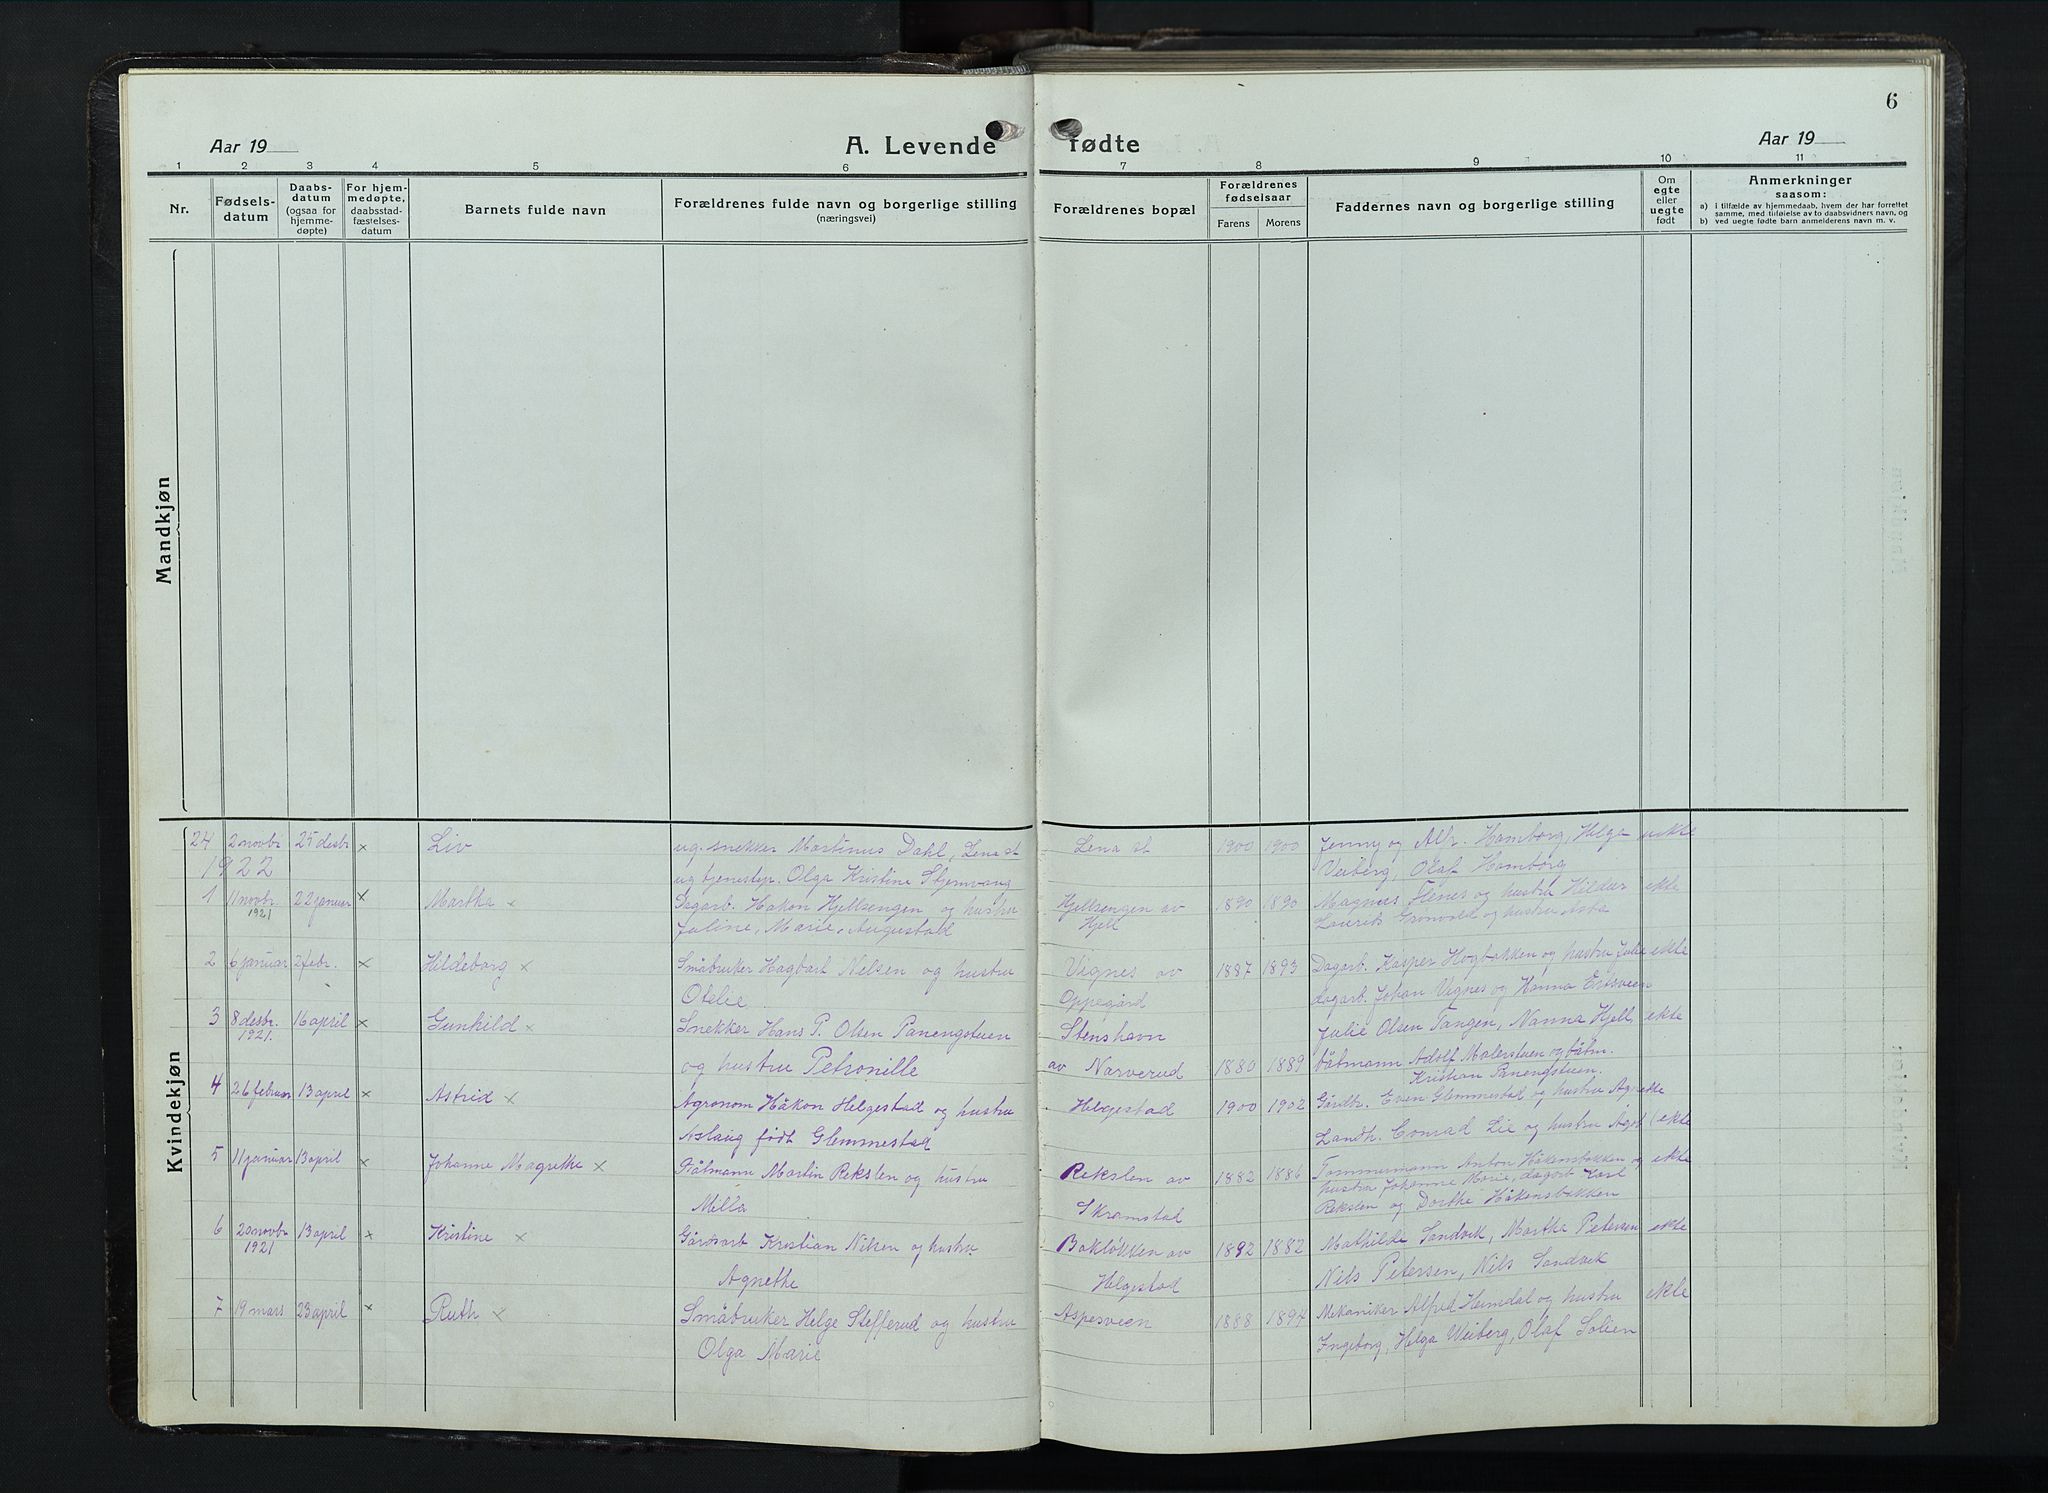 6
Aar 19
A. Levende fødte
Aar 19
1 2 3 4 5 6 7 8 9 10 11
Nr.
Fødsels-
datum
Daabs-
datum
(ogsaa for
hjemme-
døpte)
For hjem-
medøpte,
daabsstad-
fæstelses-
datum
Barnets fulde navn
Forældrenes fulde navn og borgerlige stilling
(næringsvei)
Forældrenes bopæl
Forældrenes
fødselsaar
Farens Morens
Faddernes navn og borgerlige stilling
Om
egte
eller
uegte
født
Anmerkninger
saasom:
a) i tilfælde av hjemmedaab, hvem der har forrettet
samme, med tilføielse av to daabsvidners navn, og
b) ved uegte fødte barn anmelderens navn m. v.
Mandkjøn
Kvindekjøn
24 2 novbr 25 desbr x Liv ug. snekker Martinus Dahl, Lena st Lena st 1900 1900 Jenny og Alf. Homborg, Helga uekte
1922 ug tjenestep. Olga Kristine Stjernvang Veiberg, Olaf Homborg
1 11 novbr. 22 januar x Martha x Dagarb. Håkon Hjellsengen og hustru Hjellsengen av 1890 1890 Magnus Flenes og hustru Hildur ekte
1921 Juline, Marie, Augustad Hjell Laurits Grönvold og hustru Asta
2 6 januar 2 febr. x Hildeborg x Småbruker Hagbart Nelsen og hustru Vignes av 1887 1893 Dagarb. Kasper Hogbakken og hustru Julie ekte
Otelie Oppegård dagarb. Johan Vignes og Hanna Ertsveen
3 8 desbr. 16 april x Gunhild x Snekker Hans P. Olsen Panengstuen Stenshavn Julie Olsen Tangen, Nanna Hjell, ekte
1921. og hustru Petronille av Narverud 1880 1889 båtmann Adolf Malerstuen og båtm.
Kristian Panengstuen.
4 26 februar 13 april x Astrid x Agronom Håkon Helgestad og hustru Helgestad 1900 1902 Gårdbr. Even Glemmestad og hustru Agn ekte
Aslaug født Glemmestad Landh. Conrad Lie og hustru Agot ( ekte
5 11 januar 13 april x Johanne Magrethe x Båtmann Martin Rekslen og hustru Rekslen av 1882 1886 Tømmermann Anton Håkensbakken og ekte
Milla Skramstad hustru Johanne Marie, dagarb Karl
Rekslen og Dorthe Håkensbakken
6 20 novbr 13 april x Kristine x Gårdsarb Kristian Nilsen og hustru Bakløkken av 1892 1882 Mathilde Sandvik, Martha Petersen ekte
1921 Agnethe Helgestad Nils Petersen, Nils Sandvik
7 19 mars 23 april x Ruth x Småbruker Helge Stefferud og hustru Aspesveen 1888 1894 Mekaniker Alfred Heimdal og hustru ekte
Olga Marie Ingeborg, Helga Weiberg, Olaf Solien